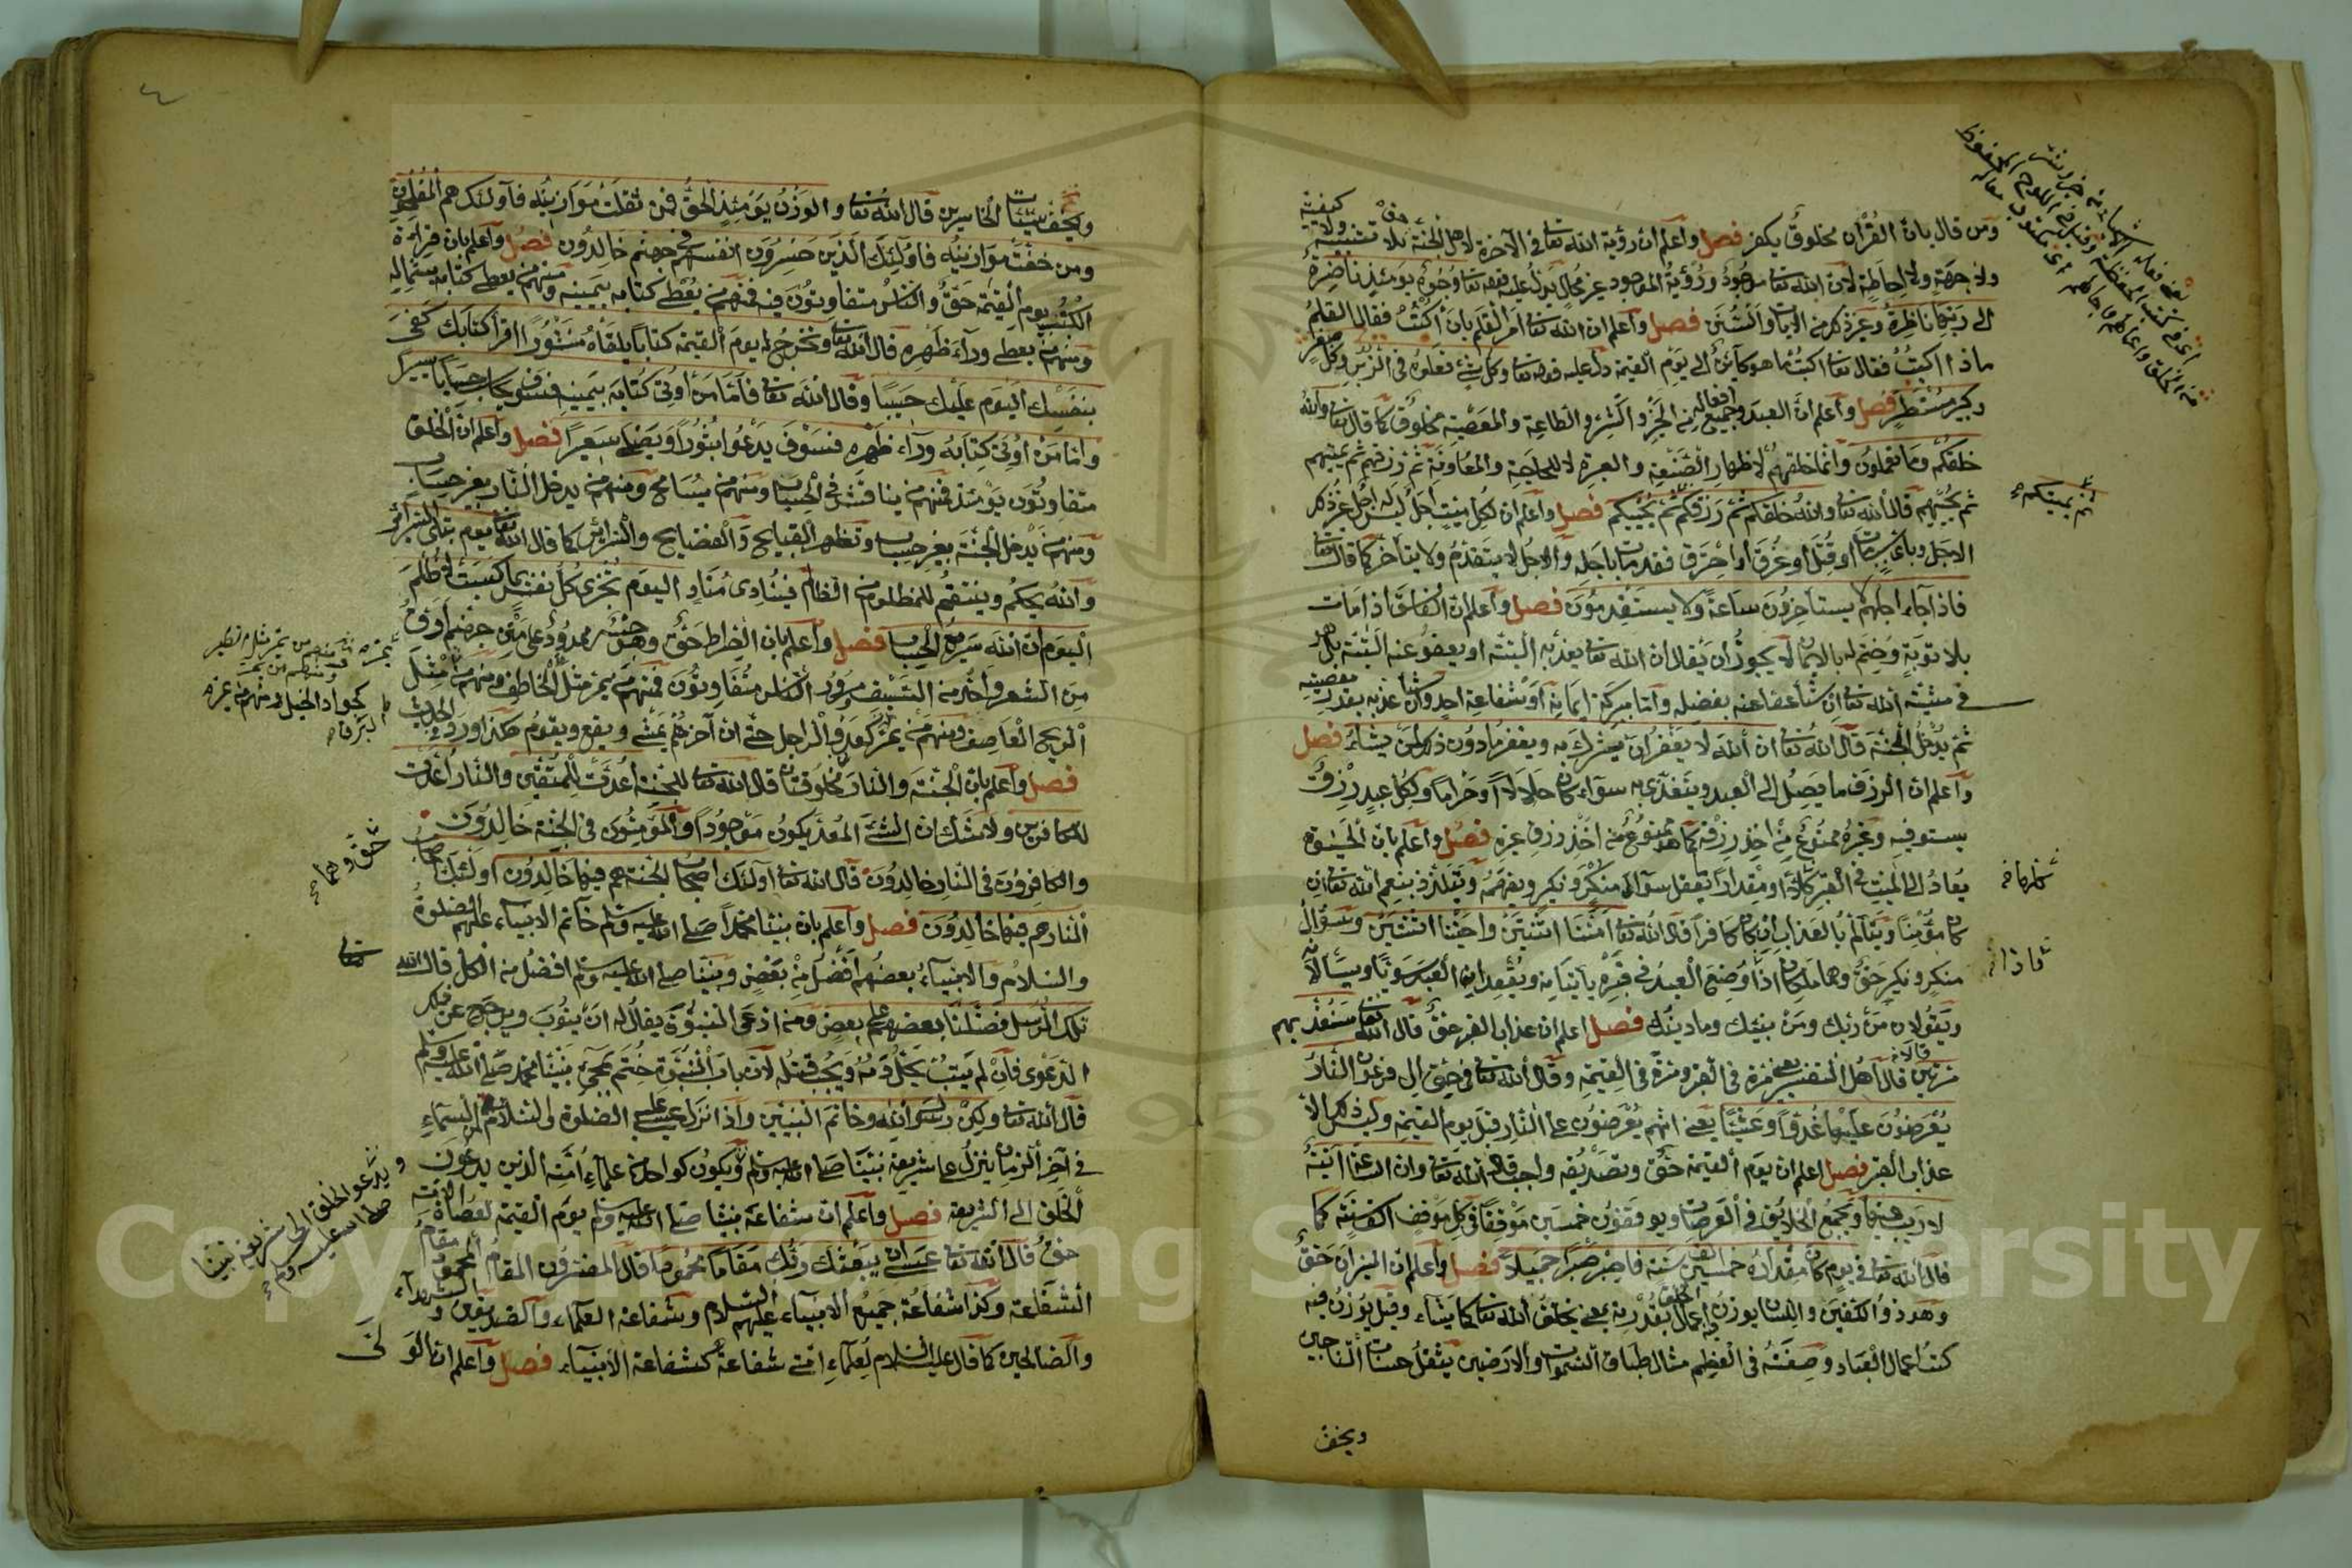 ومن قال بان القرآن مخلوق يكفر فصل واعلم ان رؤية الله تعا في الآخرة لاهل الجنة حق بلا تشبيه ولا كيفية
ولا جهة ولا احاطة لان الله تعا موجود ورؤية الموجود غير محال يدل عليه قوله تعا وجوه يومئذ ناضرة
الى ربها ناظرة وغير ذلك من الآيات والسنن فصل واعلم ان الله تعا امر القلم بان اكتب فقال القلم
ماذا اكتب فقال تعا اكتب ما هو كائن الى يوم القيمة دل عليه قوله تعا وكل شئ فعلوه في الزبر وكل صغير
وكبير مستطر فصل واعلم ان العبد وجميع افعاله من الخير والشر والطاعة والمعصية مخلوق كما قال تعا والله
خلقكم وما تعملون وانما خلقهم لاظهار الصنعة والعبرة لا للحاجة والمعاونة ثم رزقهم ثم يميتهم
ثم يحييهم قال الله تعا والله خلقكم ثم رزقكم ثم يحييكم فصل واعلم ان لكل ميت اجل ليس له اجل غير ذلك
الاجل وباي سبب مات او قتل او غرق او احترق فقد مات باجله والاجل لا يتقدم ولا يتأخر كما قال تعا
فاذا جاء اجلهم لا يستأخرون ساعة ولا يستقدمون فصل واعلم ان الفاسق اذا مات
بلا توبة وختم له بالايمان لا يجوز ان يقال ان الله تعا يعذبه البتة او يعفو عنه البتة بل هو
في مشيئة الله تعا ان شاء عفا عنه بفضله واما ببركة ايمانه او بشفاعة احد وان شاء عذبه بقدر معصيته
ثم يدخل الجنة قال الله تعا ان الله لا يغفر ان يشرك به ويغفر ما دون ذلك لمن يشاء فصل
واعلم ان الرزق ما يصل الى العبد ويتغذى به سواء كان حلالا او حراما ولكل عبد رزق
يستوفيه وغيره ممنوع من اخذ رزقه كما هو ممنوع من اخذ رزق غيره فصل واعلم بان الحيوة
يعاد الى الميت في القبر كاملة او مقدار ما يعقل سؤال منكر ونكير ويفهمه ويتلذذ بنعم الله تعا ان
كان مؤمنا ويتألم بالعذاب ان كان كافرا قال الله تعا امتنا اثنتين واحييتنا اثنتين وسؤال
منكر ونكير حق وهما ملكان اذا وضع العبد في قبره يأتيانه ويقعدان العبد سويا ويسألانه
ويقولان من ربك ومن نبيك وما دينك فصل اعلم ان عذاب القبر حق قال الله تعا سنعذبهم
مرتين قال اهل التفسير يعني مرة في القبر ومرة في القيمة وقال الله تعا في حق ال فرعون النار
يعرضون عليها غدوا وعشيا يعني انهم يعرضون على النار قبل يوم القيمة وليس ذلك الا
عذاب القبر فصل اعلم ان يوم القيمة حق وتصديقه واجب قال الله تعا وان الساعة آتية
لا ريب فيها ويجمع الخلايق في العرصات ويوقفون خمسين موقفا في كل موقف الف سنة كما
قال الله تعا في يوم كان مقداره خمسين الف سنة فاصبر صبرا جميلا فصل واعلم ان الميزان حق
وهو ذو الكفتين واللسان يوزن به اعمال الخلق بقدرته يعني يخلق الله تعا كما يشاء وقيل يوزن فيه
كتب اعمال العباد وصفته في العظم مثال طباق السموات والارضين يثقل حسنات الناجين
ويخف
ثم يميتكم
ويخف سيئات الخاسرين قال الله تعا والوزن يومئذ الحق فمن ثقلت موازينه فأولئك هم المفلحون
ومن خفت موازينه فاولئك الذين خسروا انفسهم في جهنم خالدون فصل واعلم بان قراءة
الكتب يوم القيمة حق والناس متفاوتون فيه فمنهم من يعطى كتابه بيمينه ومنهم من يعطى كتابه بشماله
ومنهم من يعطى وراء ظهره قال الله تعا ونخرج له يوم القيمة كتابا يلقاه منشورا اقرأ كتابك كفى
بنفسك اليوم عليك حسيبا وقال الله تعا فاما من اوتي كتابه بيمينه فسوف يحاسب حسابا يسيرا
واما من اوتي كتابه وراء ظهره فسوف يدعوا ثبورا ويصلى سعيرا فصل واعلم ان الخلق
متفاوتون يومئذ فمنهم من يناقش في الحساب ومنهم من يسامح ومنهم من يدخل النار بغير حساب
ومنهم من يدخل الجنة بغير حساب وتظهر القبايح والفضايح والسرائر كما قال الله تعا يوم تبلى السرائر
والله يحكم وينتقم للمظلوم من الظالم فينادي مناد اليوم تجزى كل نفس بما كسبت لا ظلم
اليوم ان الله سريع الحساب فصل واعلم بان الصراط حق وهو جسر ممدود على متن جهنم ادق
من الشعر واحد من السيف ومرور الناس متفاوتون فمنهم من يمر مثل الخاطف ومنهم من مثل
الريح العاصف ومنهم من يمر كعدو الراجل حتى ان آخرهم يمشي ويقع ويقوم هكذا ورد في الحديث
فصل واعلم بان الجنة والنار مخلوقتان قال الله تعا للجنة اعدت للمتقين والنار اعدت
للكافرين ولا شك ان الشئ المعد يكون موجودا والمؤمنون في الجنة خالدون
والكافرون في النار خالدون قال الله تعا اولئك اصحاب الجنة هم فيها خالدون اولئك اصحاب
النار هم فيها خالدون فصل واعلم بان نبينا محمدا صلى الله عليه وسلم خاتم الانبياء عليهم الصلوة
والسلام والانبياء بعضهم افضل من بعض ونبينا صلى الله عليه وسلم افضل من الكل قال الله
تلك الرسل فضلنا بعضهم على بعض ومن ادعى النبوة يقال له ان يتوب ويرجع عن تلك
الدعوى فان لم يتب يحل دمه ويجب قتله لان باب النبوة ختم بمجئ نبينا محمد صلى الله عليه وسلم
قال الله تعا ولكن رسول الله وخاتم النبيين واذا نزل عيسى عليه الصلوة والسلام من السماء
في آخر الزمان ينزل على شريعة نبينا صلى الله عليه وسلم ويكون كواحد من علماء امته الذين يدعون
الخلق الى الشريعة فصل واعلم ان شفاعة نبينا صلى الله عليه وسلم يوم القيمة لعصاة الامة
حق قال الله تعا عسى ان يبعثك ربك مقاما محمودا قال المفسرون المقام المحمود مقام
الشفاعة وكذا شفاعة جميع الانبياء عليهم السلام وشفاعة العلماء والصديقين والشهداء
والصالحين كما قال عليه السلام لعلماء امتي شفاعة كشفاعة الانبياء فصل واعلم ان الولى
حق وهما
ويدعو الخلق الى شريعة نبينا
صلى الله عليه وسلم